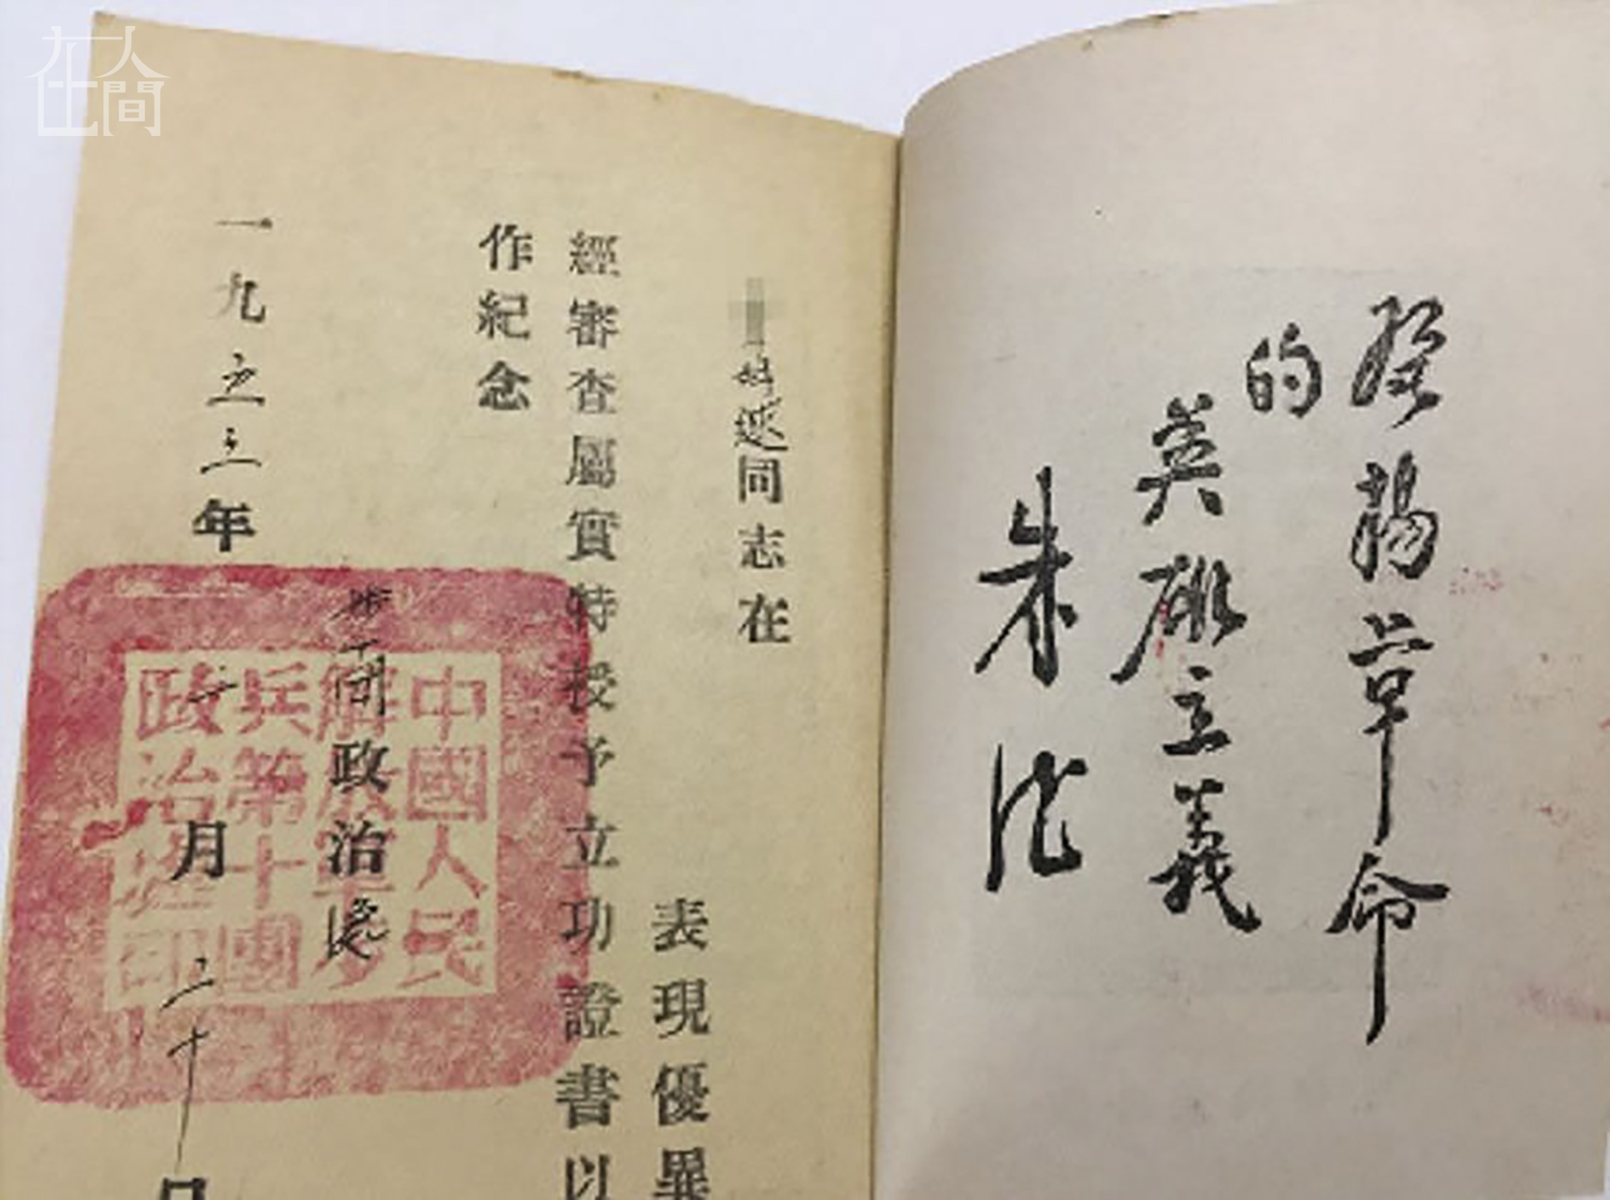 發揚革命
的
英雄主義
朱德
同志在
表現優異
經審查屬實特授予立功證書以
作紀念
政治處
一九五三年 月二十日
中國人民
解放軍步
兵第十團
政治處印
人間